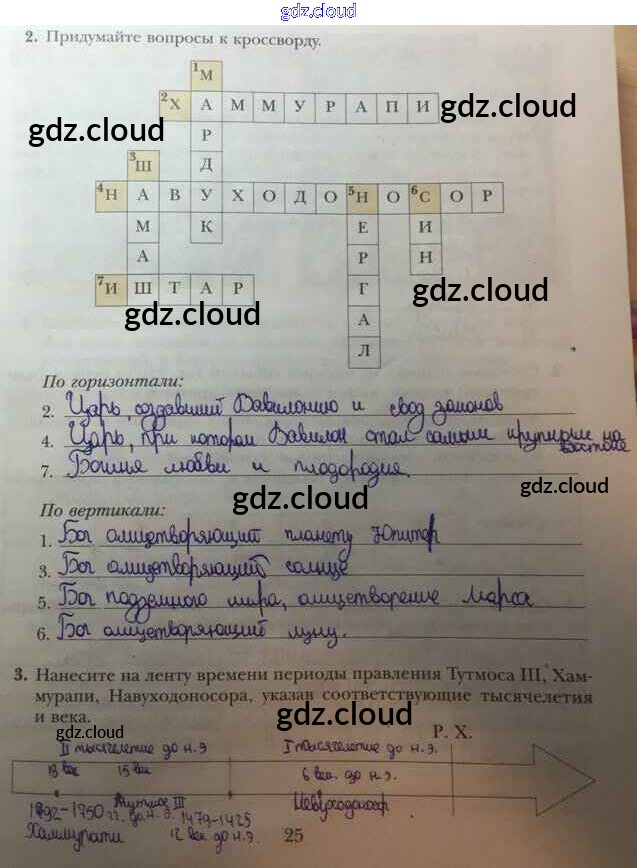 gdz.cloud
2. Придумайте вопросы к кроссворду.
1М
2ХАММУРАПИ
gdz.cloud
gdz.cloud
Р
Д
3Ш
4НАВУХОДО5НО6СОР
М К Е И
А Р Н
7ИШТАР Г
gdz.cloud
gdz.cloud
А
Л
По горизонтали:
2. Царь, создавший Вавилонию и свод законов
4. Царь, при котором Вавилон стал самым крупным на
востоке
7. Богиня любви и плодородия.
gdz.cloud
gdz.cloud
По вертикали:
1. Бог олицетворяющий планету Юпитер
3. Бог олицетворяющий солнце
gdz.cloud
5. Бог подземного мира, олицетворение Марса
6. Бог олицетворяющий луну.
3. Нанесите на ленту времени периоды правления Тутмоса III, Хам-
мурапи, Навуходоносора, указав соответствующие тысячелетия
и века.
gdz.cloud
gdz.cloud
Р. Х.
II тысячелетие до н.э I тысячелетие до н.э.
18 век 15 век 6 век до н.э.
1792-1750 гг. до н.э. Тутмос III 1479-1425 Навуходоносор
Хаммурапи 12 век до н.э.
25